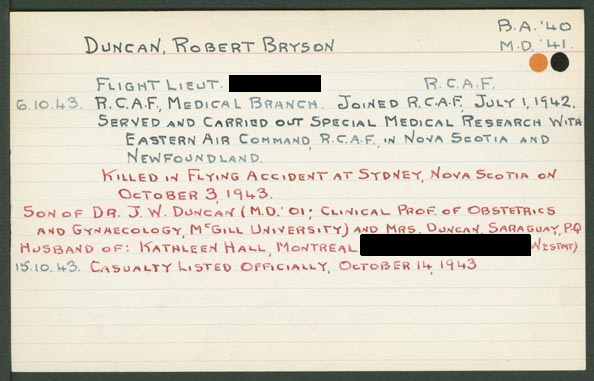 B.A. '40
DUNCAN, ROBERT BRYSON
M.D. '41.
FLIGHT LIEUT. R.C.A.F.
6.10.43. R.C.A.F., MEDICAL BRANCH. JOINED R.C.A.F. JULY 1, 1942.
SERVED AND CARRIED OUT SPECIAL MEDICAL RESEARCH WITH
EASTERN AIR COMMAND, R.C.A.F. IN NOVA SCOTIA AND
NEWFOUNDLAND.
KILLED IN FLYING ACCIDENT AT SYDNEY, NOVA SCOTIA ON
OCTOBER 3, 1943.
SON OF DR. J. W. DUNCAN (M.D. '01; CLINICAL PROF. OF OBSTETRICS
AND GYNAECOLOGY, McGILL UNIVERSITY) AND MRS. DUNCAN, SARAGUAY, P.Q.
HUSBAND OF: KATHLEEN HALL, MONTREAL WESTMT)
15.10.43. CASUALTY LISTED OFFICIALLY, OCTOBER 14, 1943